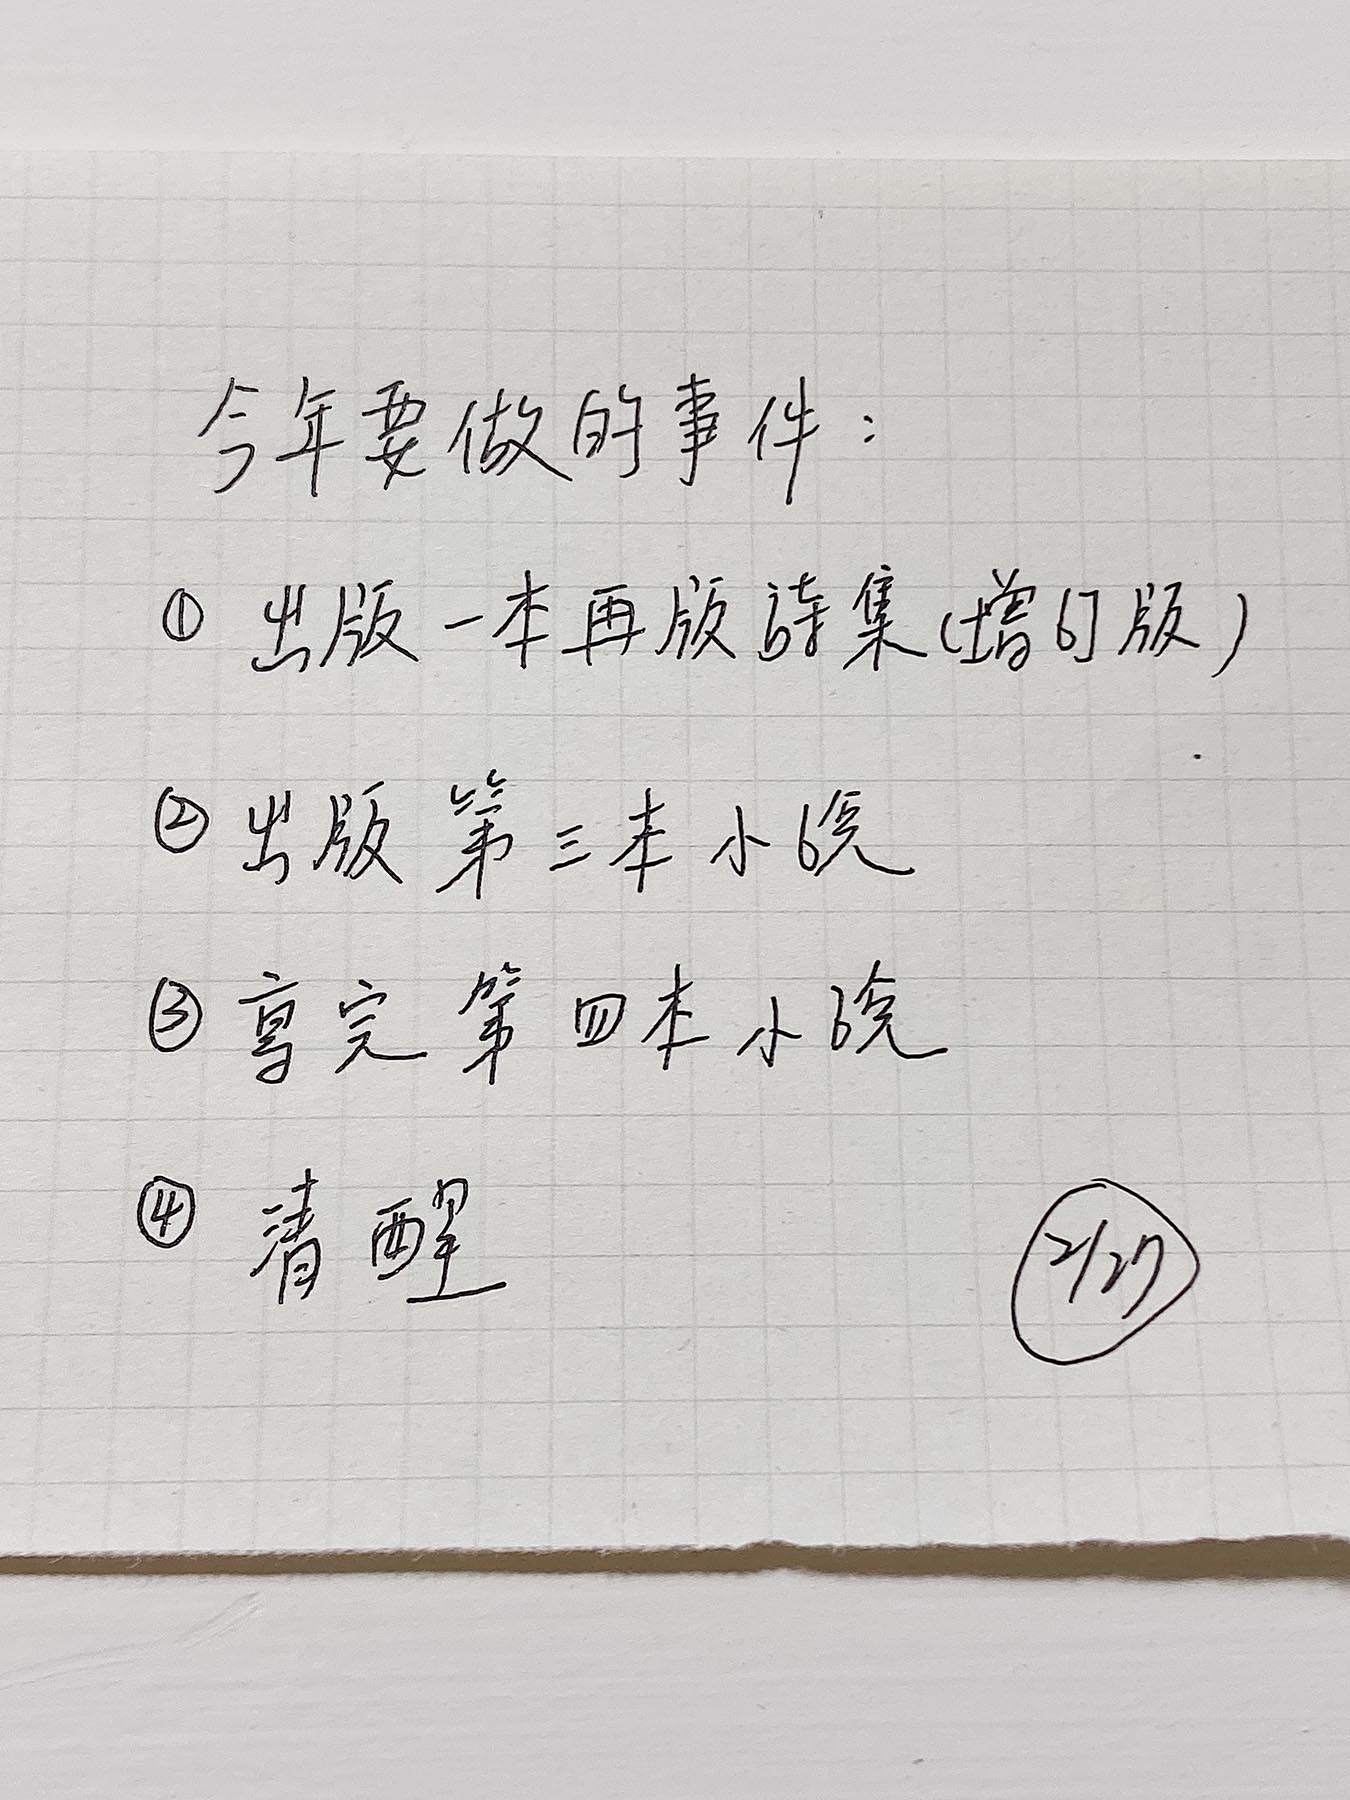 今年要做的事件：
① 出版一本再版詩集(增訂版)
② 出版第三本小說
③ 寫完第四本小說
④ 清醒
2/27